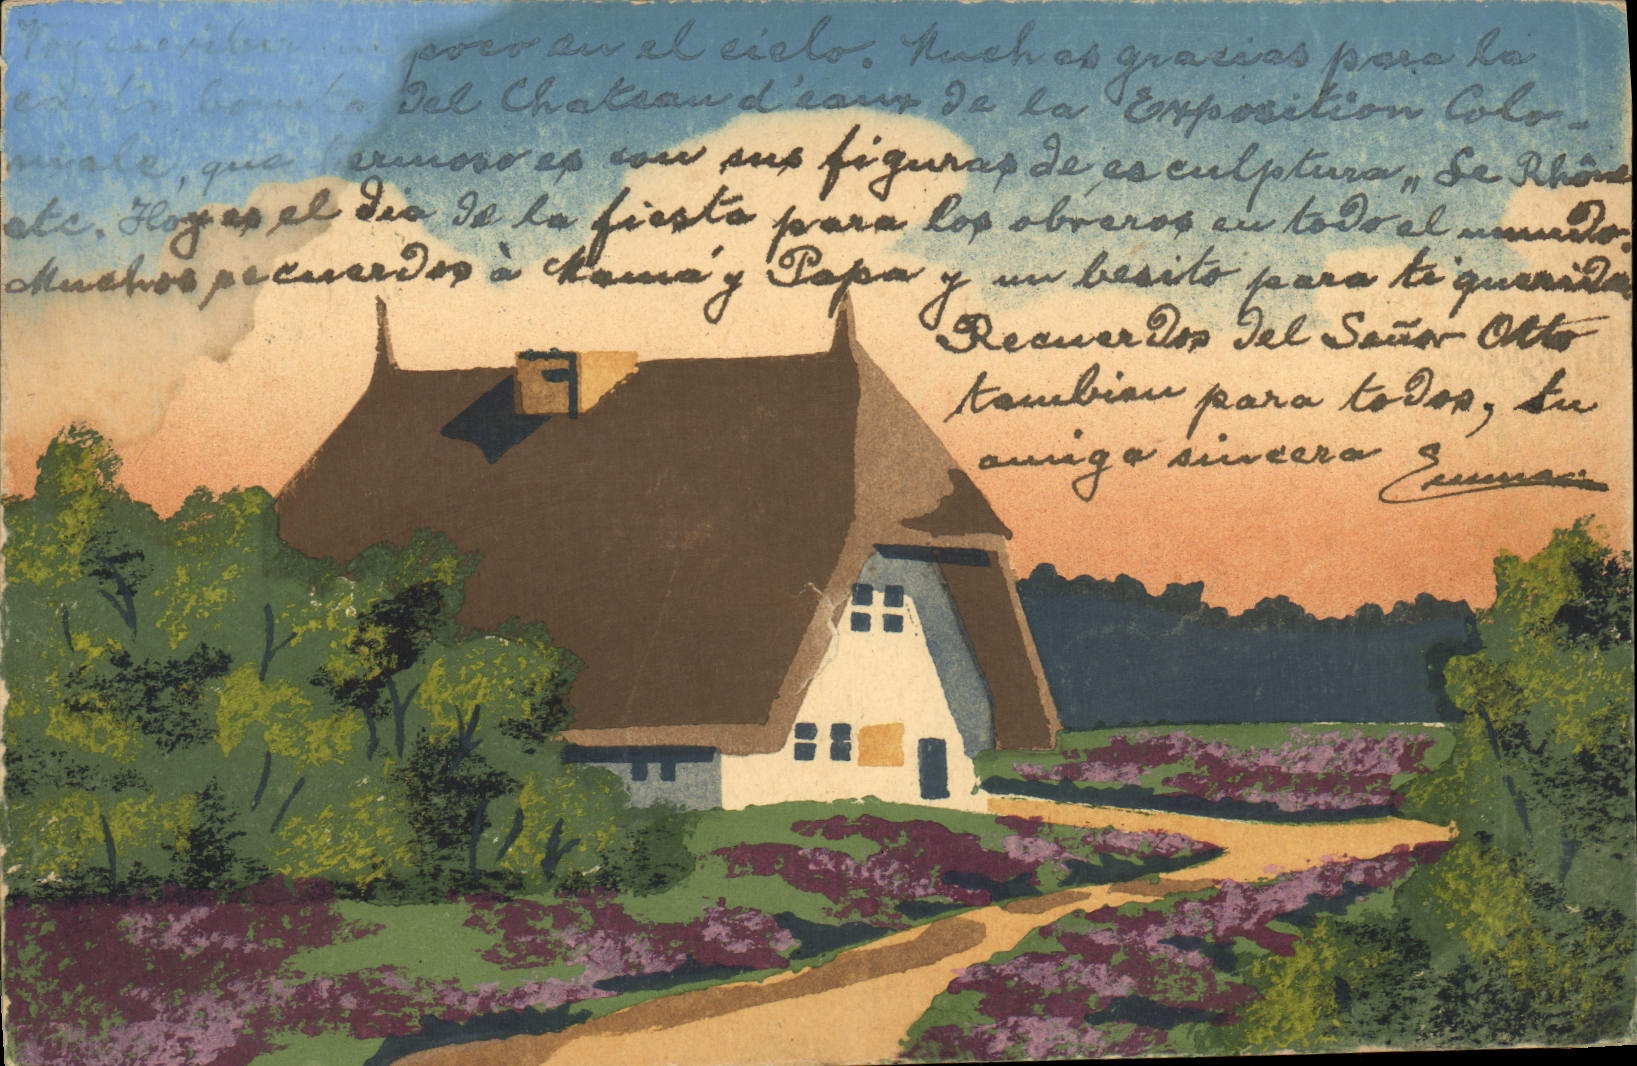 Voy escribir un poco en el cielo. Muchas gracias para la
carta bonita del Chateau d'eaux de la Exposition Colo-
niale, que hermoso es con sus figuras de esculptura „Le Rhône
etc. Hoy es el dia de la fiesta para los obreros en todo el mundo.
Muchos recuerdos à Mamá y Papa y un besito para ti querida
Recuerdos del Señor Otto
tambien para todos, tu
amiga sincera Emma